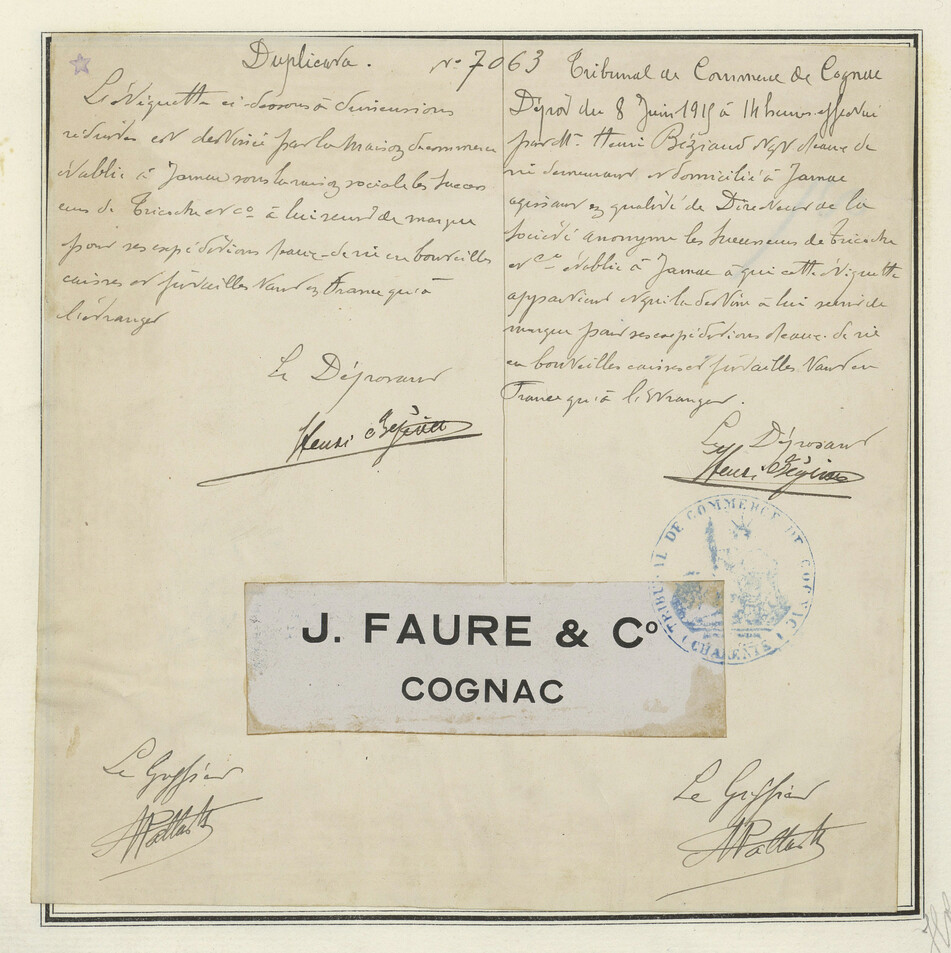 Duplicata.
La Vignette ci-dessous à dimensions
réduites est destinée par la maison de commerce
établie à Jarnac sous la raison sociale les Succes
eurs de Tricoche et Co à lui servir de marque
pour ses expéditions d'eaux-de-vie en bouteilles
caisses et futailles tant en France qu'à
l'étranger
Le Déposant
Henri
No 7063 Tribunal de Commerce de Cognac
Dépôt du 8 Juin 1915 à 14 heures effectué
par Mr Henri Béziaud Negt d'eaux de
vie demeurant et domicilié à Jarnac
agissant en qualité de Directeur de la
Société anonyme les Successeurs de Tricoche
et Co établie à Jarnac à qui cette étiquette
appartient et qui la destine à lui servir de
marque pour ses expéditions d'eaux-de-vie
en bouteilles caisses et futailles tant en
France qu'à l'étranger.
Le Déposant
Henri
TRIBUNAL DE COMMERCE DE COGNAC
(CHARENTE)
J. FAURE & Co
COGNAC
Le Greffier
Le Greffier